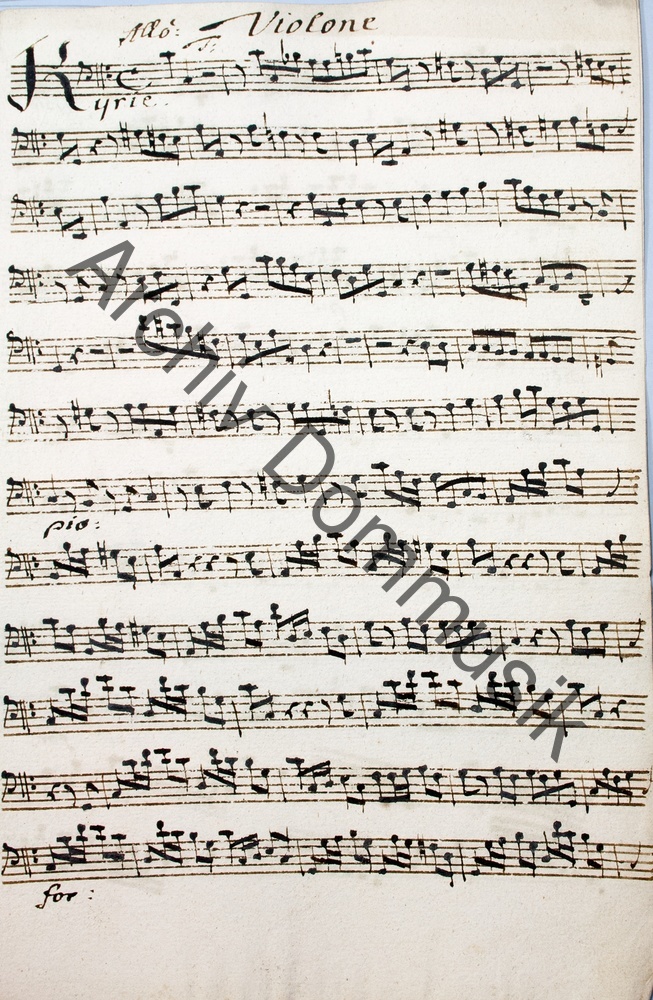 Allo: Violone
T:
Kyrie.
pio:
for:
Archiv Dommusik